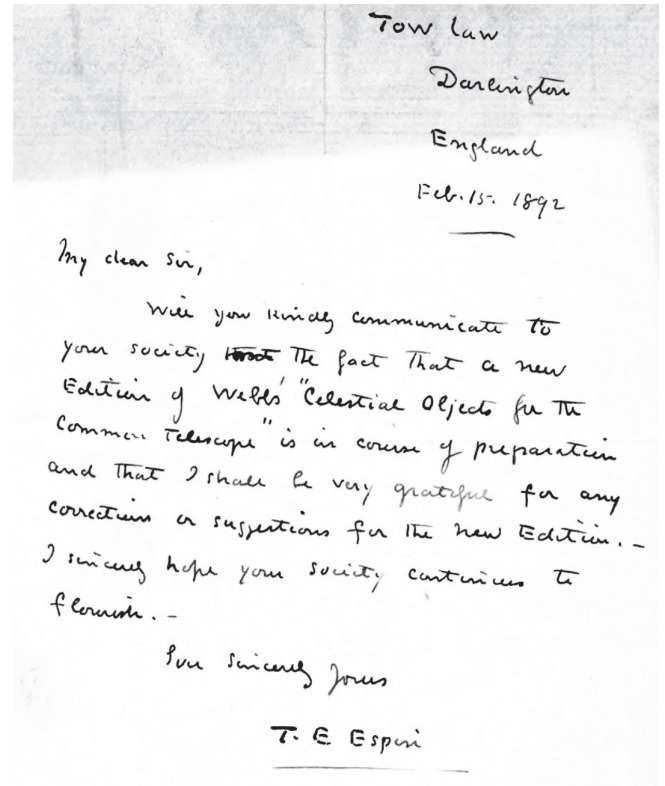 Tow Law
Darlington
England
Feb. 15. 1892
My dear Sir,
Will you kindly communicate to
your society the fact that a new
Edition of Webb's "Celestial Objects for the
Common Telescope" is in course of preparation
and that I shall be very grateful for any
corrections or suggestions for the new Edition. –
I sincerely hope your society continues to
flourish. –
Sincerely Yours
T. E. Espin